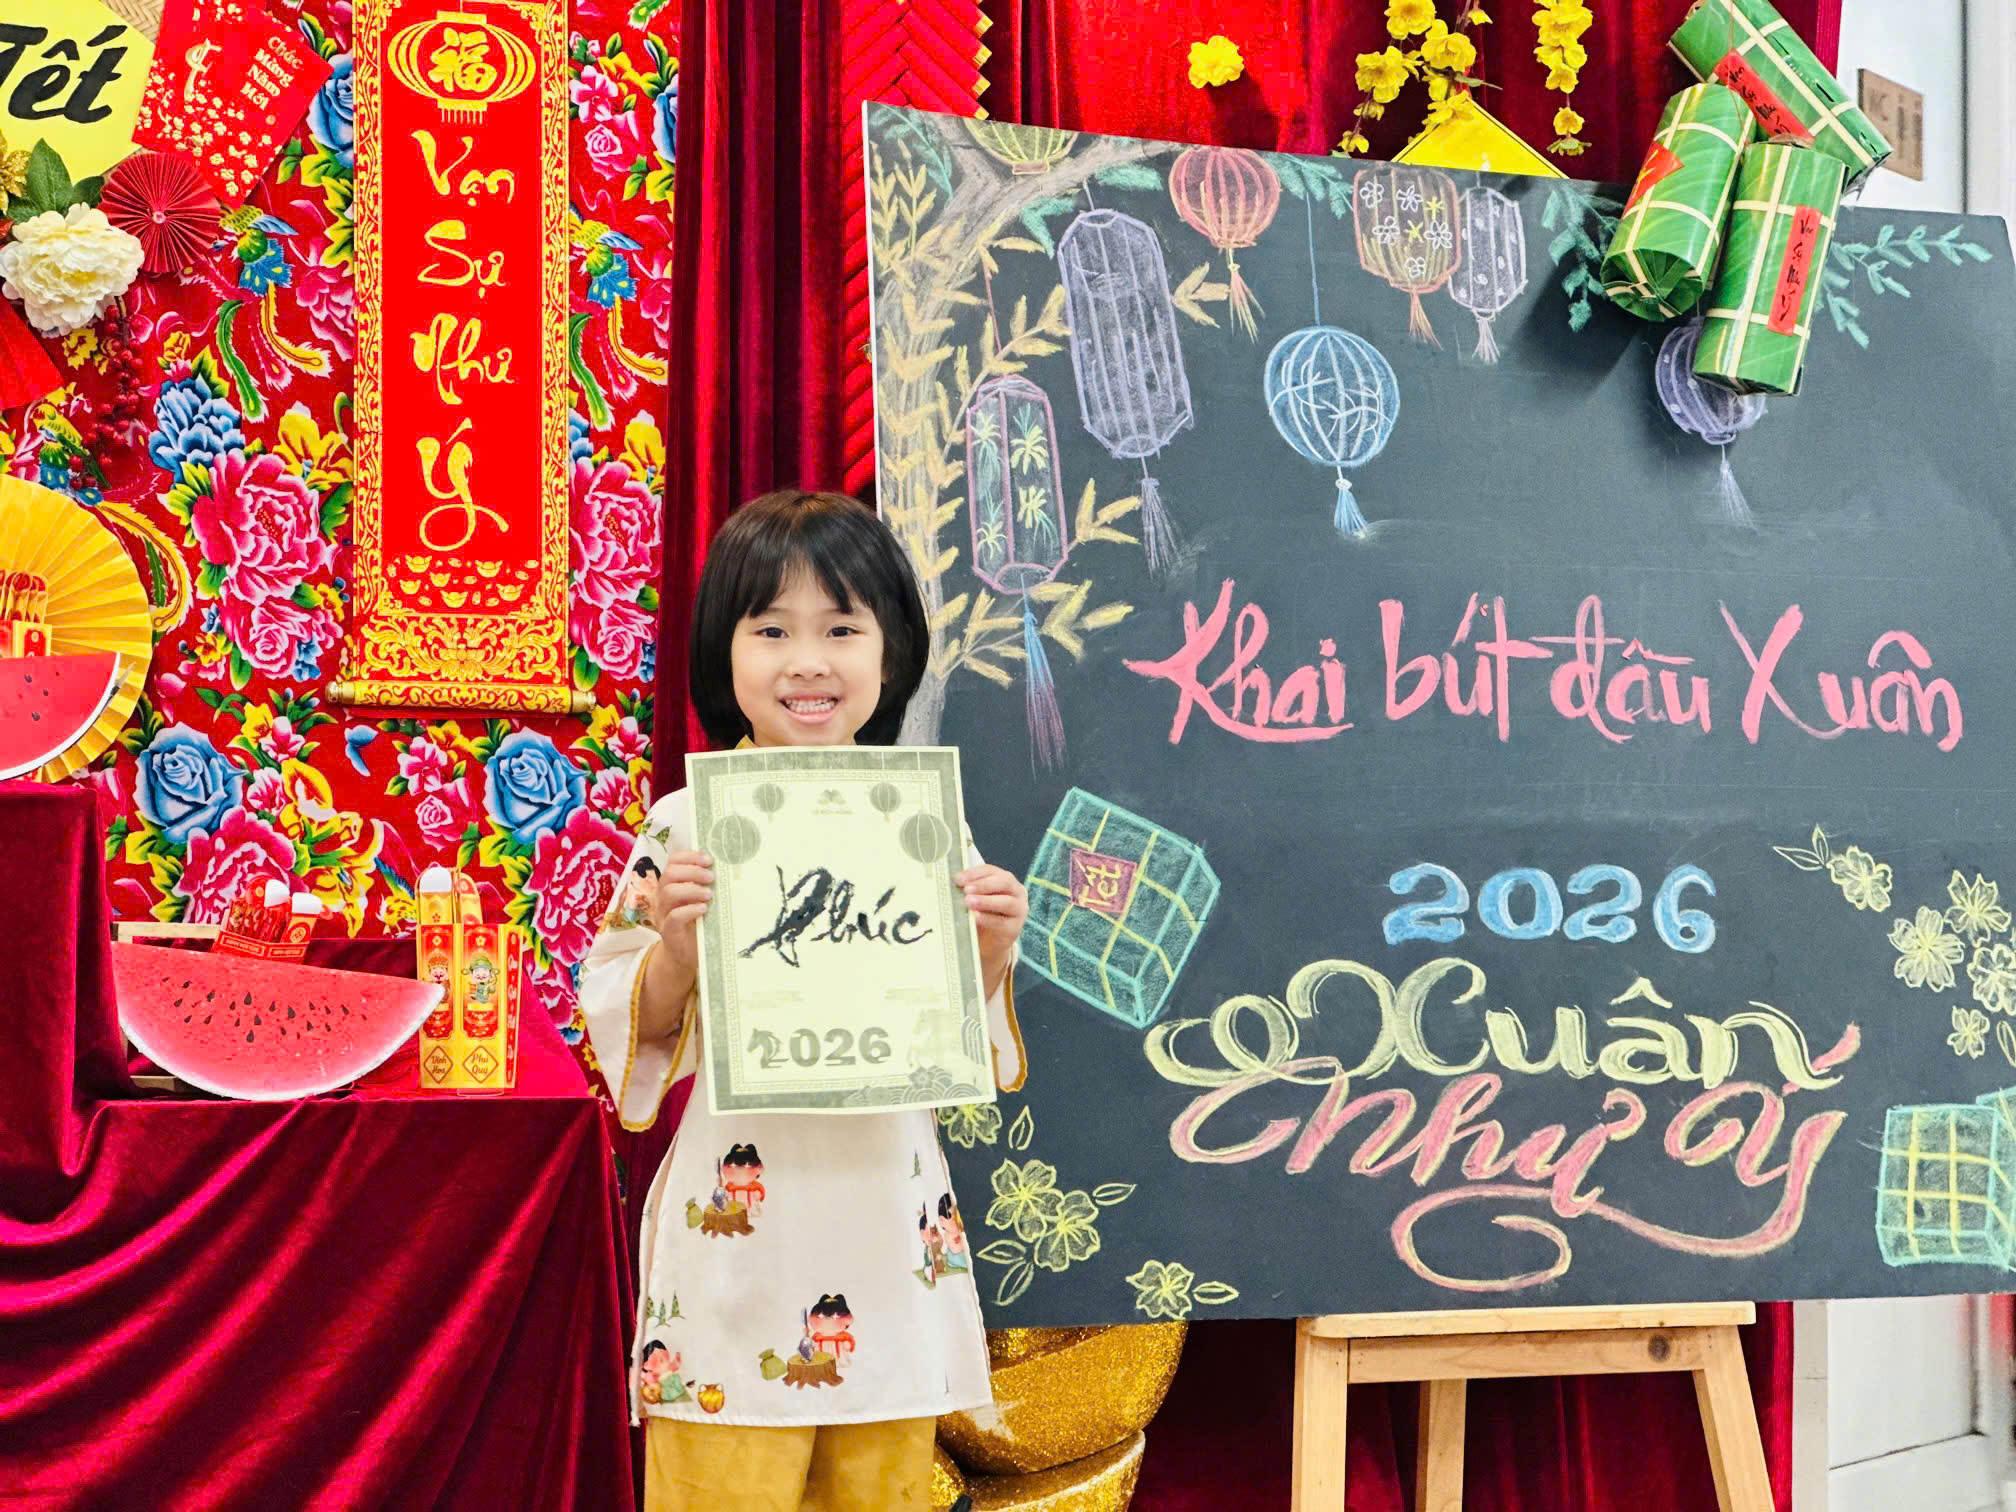 Tết
Chúc
Mừng
Năm
Mới
福
Vạn
Sự
Như
Ý
Khai bút đầu Xuân
2026
Xuân
Như Ý
Tết
Phúc
2026
Vinh
Hoa
Phú
Quý